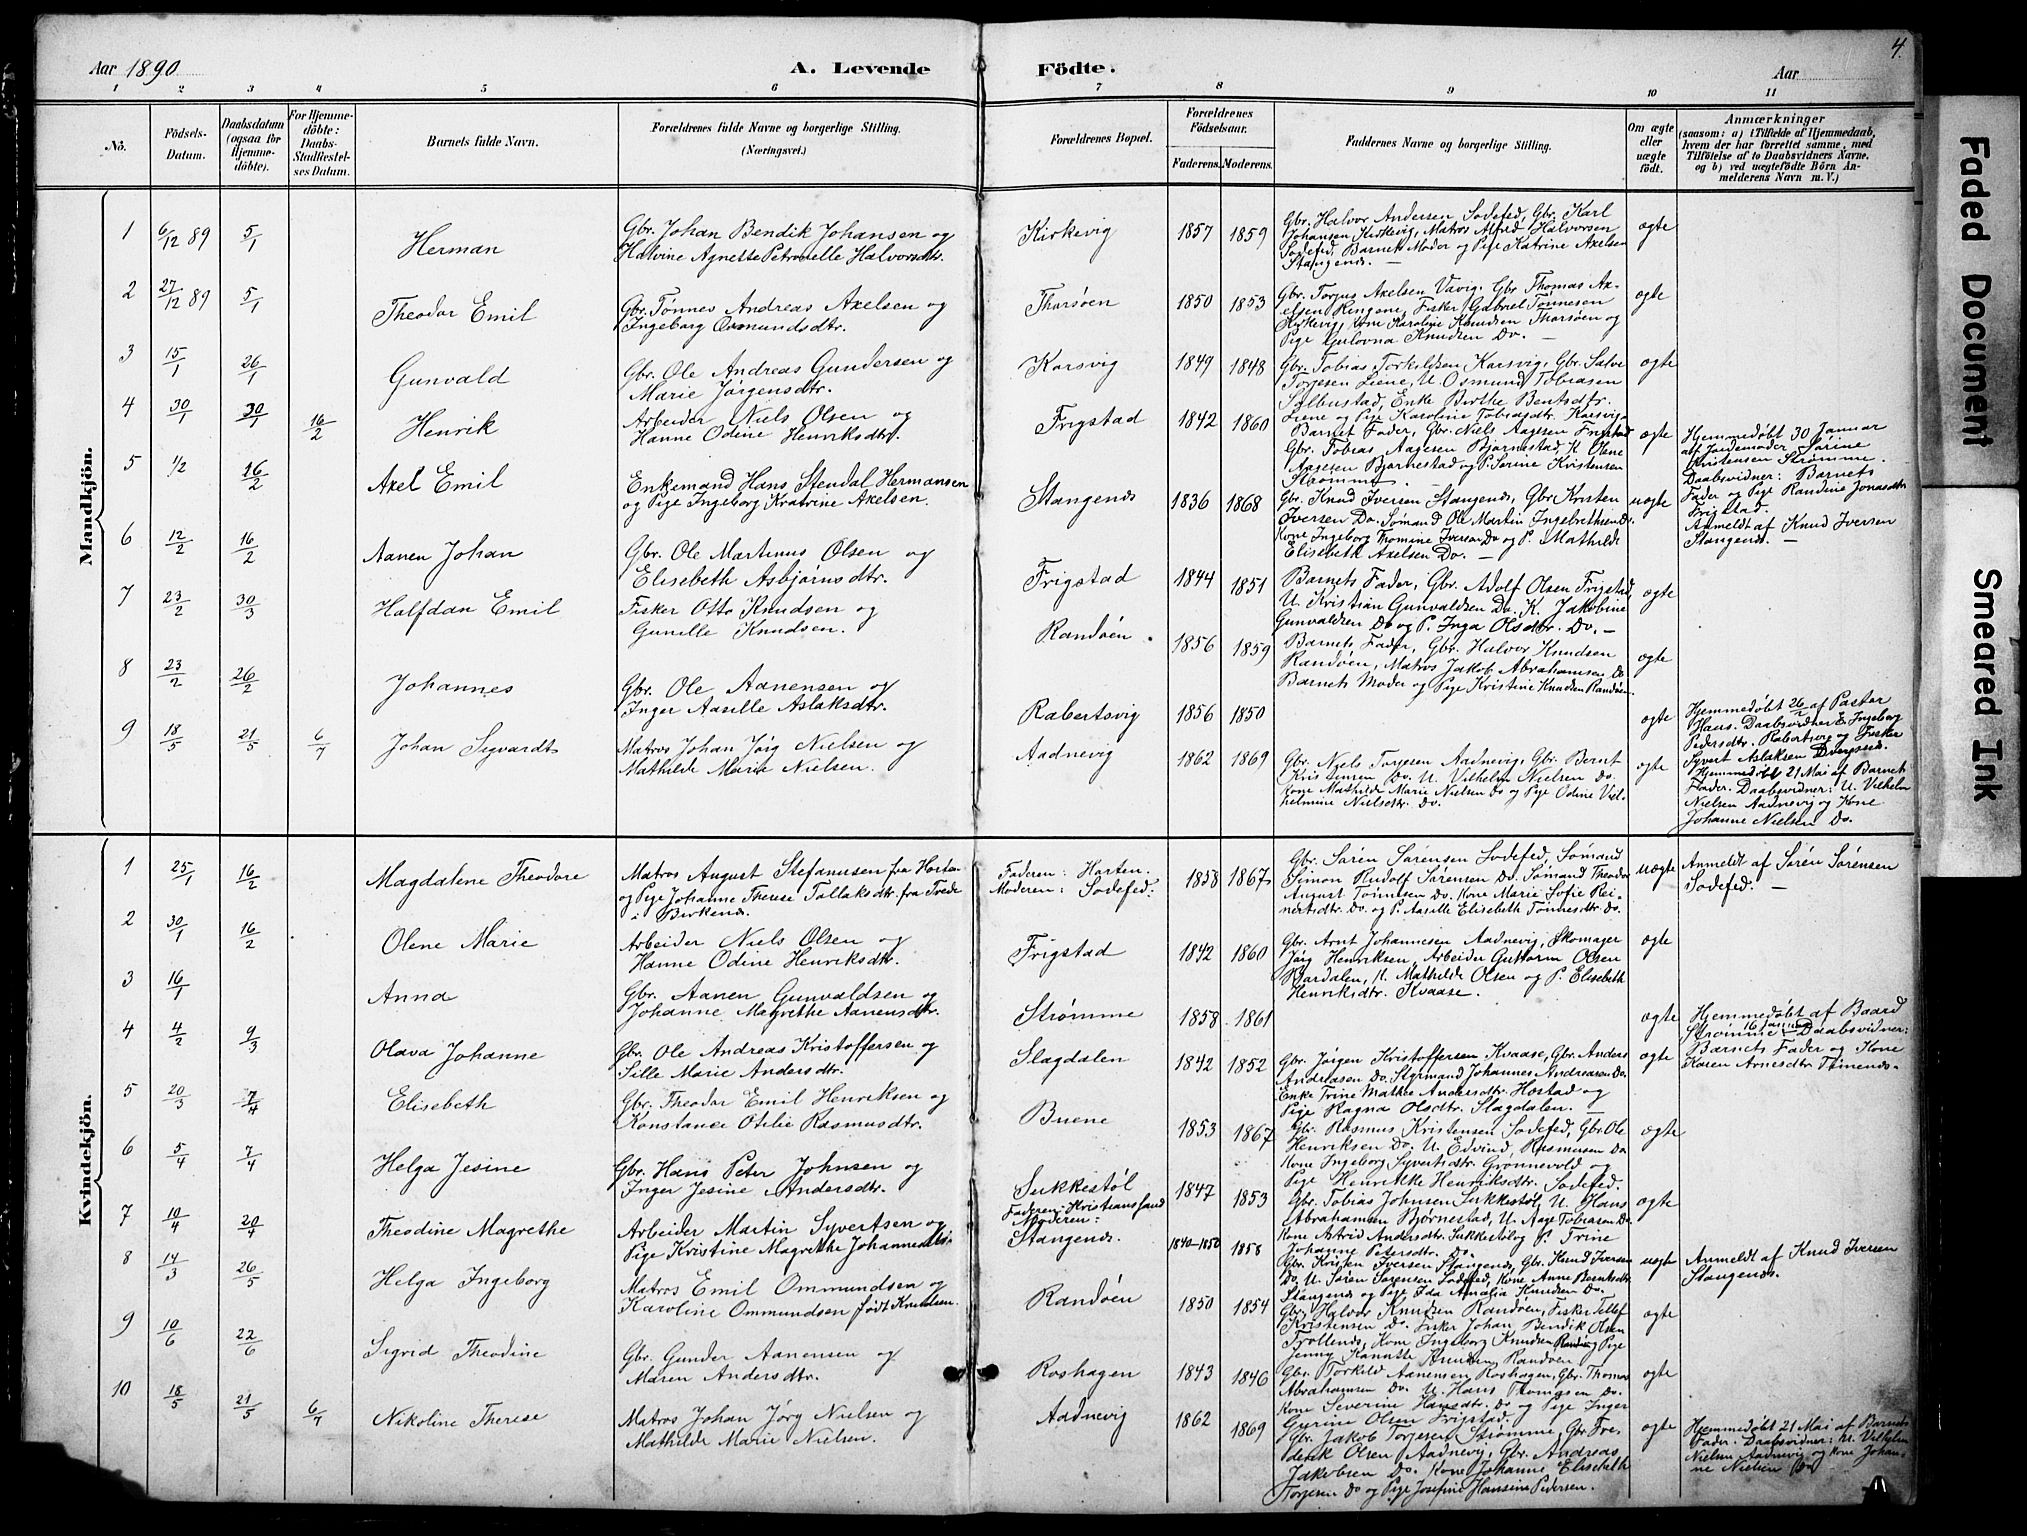 4.
Aar 1890
A. Levende Födte.
Aar
1 2 3 4 5 6 7 8 9 10 11
No.
Födsels-Datum.
Daabsdatum (ogsaa for Hjemmedöbte).
For Hjemmedöbte: Daabs-Stadfestelses Datum.
Barnets fulde Navn.
Forældrenes fulde Navne og borgerlige Stilling.
(Næringsvei.)
Forældrenes Bopæl.
Forældrenes Födselsaar.
Faderens. Moderens.
Faddernes Navne og borgerlige Stilling.
Om ægte eller uægte födt.
Anmærkninger
(saasom: a) i Tilfælde af Hjemmedaab, hvem der har forrettet samme, med Tilföielse af to Daabsvidners Navne. og b) ved uægtefödte Börn Anmelderens Navn m. V.)
Mandkjön.
1 6/12 89 5/1 Herman
Gbr. Johan Bendik Johansen og
Halvine Agnette Petronelle Halvorsdtr.
Kirkevig 1857 1859
Gbr. Halvor Andersen Sodefed, Gbr. Karl
Johansen Kirkevig, Matros Alfred Halvorsen
Sodefed, Barnets Moder og Pige Katrine Axelsen
Stangenes. —
ægte
2 27/12 89 5/1 Theodor Emil
Gbr. Tønnes Andreas Axelsen og
Ingeborg Osmundsdtr.
Tharsøen 1850 1853
Gbr. Torjus Axelsen Vavig, Gbr Thomas Ax-
elsen Ringene, Fisker Gabriel Tønnesen
Kirkevig, Kone Karoline Knudsen Tharsøen og
Pige Gulovna Knudsen Do. —
ægte
3 15/1 26/1 Gunvald
Gbr. Ole Andreas Gundersen og
Marie Jørgensdtr.
Korsvig 1849 1848
Gbr. Tobias Torkildsen Korsvig, Gbr. Salve
Torjesen Liene, U. Osmund Tobiasen
Enke Birthe Bentsdtr.
Liene og Pige Karoline Tobiasdtr. Korsvig.
ægte
4 30/1 30/1 16/2 Henrik
Arbeider Niels Olsen og
Hanne Odine Henriksdtr.
Frigstad 1842 1860
Barnets Fader, Gbr. Niels Aagesen Frigstad
Gbr. Tobias Aagesen Bjørnestad, K. Olene
Aagesen Bjørnestad og P. Sørine Kristensen
Strømme.
ægte
Hjemmedøbt 30 Januar
af Jordemoder Sørine
Kristensen Strømme.
Daabsvidner: Barnets
Fader og Pige Randine Jonasdtr
Frigstad.
5 1/2 16/2 Axel Emil
Enkemand Hans Stendal Hermansen
og Pige Ingeborg Kratrine Axelsen.
Stangenes 1836 1868
Gbr. Knud Iversen Stangenes, Gbr Kristen
Iversen Do. Sømand Ole Martin Ingebrethsen Do.
Kone Ingeborg Tomine Iversen Do og P. Mathilde
Elisebeth Axelsen Do. —
uægte
Anmeldt af Knud Iversen
Stangenes. —
6 12/2 16/2 Aanen Johan
Gbr. Ole Martinus Olsen og
Elisebeth Asbjørnsdtr.
Frigstad 1844 1851
Barnets Fader, Gbr. Adolf Olsen Frigstad,
U. Kristian Gunvaldsen Do. K. Jakobine
Gunvaldsen Do og P. Inga Olsdtr. Do. —
ægte
7 23/2 30/3 Halfdan Emil
Fisker Otto Knudsen og
Gunille Knudsen.
Randøen. 1856 1859
Barnets Fader, Gbr. Halvor Knudsen
Randøen, Matros Jakob Abrahamsen Do
Barnets Moder og Pige Kristine Knudsen Randøen.
ægte
8 23/2 26/2 Johannes
Gbr. Ole Aanensen og
Inger Aasille Aslaksdtr.
Rabertsvig 1856 1850
ægte
Hjemmedøbt 26/2 af Pastor
Hans. Daabsvidner E. Ingeborg
Pedersdtr. Robertsvig og Fisker
Syvert Aslaksen
9 18/5 21/5 6/7 Johan Sigvardt
Matros Johan Jørg Nielsen og
Mathilde Marie Nielsen.
Aadnevig 1862 1869
Gbr. Niels Torjesen Aadnevig, Gbr. Bernt
Kristensen Do. U. Vilhelm Nielsen Do.
Kone Mathilde Marie Nielsen Do og Pige Odine Vil-
helmine Nielsdtr. Do.
ægte
Hjemmedøbt 21 Mai af Barnets
Fader. Daabsvidner: U. Vilhelm
Nielsen Aadnevig og Kone
Johanne Nielsen Do.
Kvindekjön.
1 25/1 16/2 Magdalene Theodore
Matros August Stefanusen fra Horten
og Pige Johanne Therese Tollaksdtr. fra Tvede
i Birkenes.
Faderen: Horten.
Moderen: Sodefed.
1858 1867
Gbr. Søren Sørensen Sodefed, Sømand
Simon Rudolf Sørensen Do. Sømand Theodor
August Tønnesen Do. Kone Marie Sofie Rei-
nertsdtr. Do. og P. Aasille Elisebeth Tønnesdtr. Do.
uægte
Anmeldt af Søren Sørensen
Sodefed. —
2 30/1 16/2 Olene Marie
Arbeider Niels Olsen og
Hanne Odine Henriksdtr.
Frigstad 1842 1860
Gbr. Arnt Johannesen Aadnevig, Skomager
Jørg Henriksen, Arbeider Guttorm Olsen
Bardalen, K. Mathilde Olsen og P. Elisebeth
Henriksdtr. Kvaase.
ægte
3 16/1 Anna
Gbr. Aanen Gunvaldsen og
Johanne Magrethe Aanensdtr.
Strømme 1858 1861
ægte
Hjemmedøbt af Baard
Strømme 16 Januar Daabsvidner:
Barnets Fader og Kone
Karen Arnesdtr Timenes.
4 4/2 9/3 Olava Johanne
Gbr. Ole Andreas Kristoffersen og
Sille Marie Andersdtr.
Slagdalen 1842 1852
Gbr. Jørgen Kristoffersen Kvaase, Gbr. Anders
Andreasen Do. Styrmand Johannes Andreasen Do.
Enke Trine Mathee Andersdtr. Hostad og
Pige Ragna Olsdtr. Slagdalen. —
ægte
5 20/3 7/4 Elisebeth
Gbr. Theodor Emil Henriksen og
Konstance Otilie Rasmusdtr.
Buene 1853 1867
Gbr. Rasmus Kristensen Sodefed, Gbr. Ole
Henriksen Do. U. Edvind Rasmusen Do
Kone Ingeborg Syvertsdtr. Grønnevold og
Pige Henrikke Henriksdtr. Sodefed.
ægte
6 5/4 7/4 Helga Jesine
Gbr. Hans Peter Johnsen og
Inger Jesine Andersdtr.
Sukkestøl 1847 1853
Gbr. Tobias Johnsen Sukkestøl, U. Hans
Abrahamsen Bjørnestad, U. Aage Tobiasen Do.
Kone Astrid Andersdtr. Sukkestøl og P. Trine
Johanne Petersdtr. Do.
ægte
7 10/4 20/4 Theodine Magrethe
Arbeider Martin Syvertsen og
Pige Kristine Magrethe
Faderen: Kristianssand
Moderen:
Stangenes.
1840-1850 1858
Gbr. Kristen Iversen Stangenes, Gbr. Knud Iversen
Do. U. Søren Sørensen Sodefed, Kone Anne Berntsdtr.
Stangenes og Pige Ida Amalia Knudsen Do.
uægte
Anmeldt af Knud Iversen
Stangenes.
8 14/3 26/5 Helga Ingeborg
Matros Emil Ommundsen og
Karoline Ommundsen født Knudsen.
Randøen 1850 1854
Gbr. Halvor Knudsen Randøen, Fisker Tellef
Kristensen Do. Fisker Johan Bendik Olsen
Trollenes, Kone Ingeborg Knudsen Randøen, Pige
Jenny Knudsen Randøen.
ægte
9 10/6 22/6 Sigrid Theodine
Gbr. Gunder Aanensen og
Maren Andersdtr.
Roshagen 1843 1846
Gbr. Torkild Aanensen Roshagen, Gbr. Thomas
Abrahamsen Do. U. Hans Thomesen Do.
Kone Severine Hansdtr. Do og Pige Inger
Gurine Olsen Frigstad.
ægte
10 18/5 21/5 6/7 Nikoline Therese
Matros Johan Jørg Nielsen og
Mathilde Marie Nielsen.
Aadnevig 1862 1869
Gbr. Jakob Torjesen Strømme, Gbr. Fre-
derik Olsen Aadnevig, Gbr. Andreas
Jakobsen Do. Kone Johanne Elisebeth
Torjesen Do og Pige Josefine Hansine Pedersen.
ægte
Hjemmedøbt 21 Mai af Barnets
Fader. Daabsvidner: U. Vilhelm
Nielsen Aadnevig og Kone Johan-
ne Nielsen Do.
Faded Document
Smeared Ink